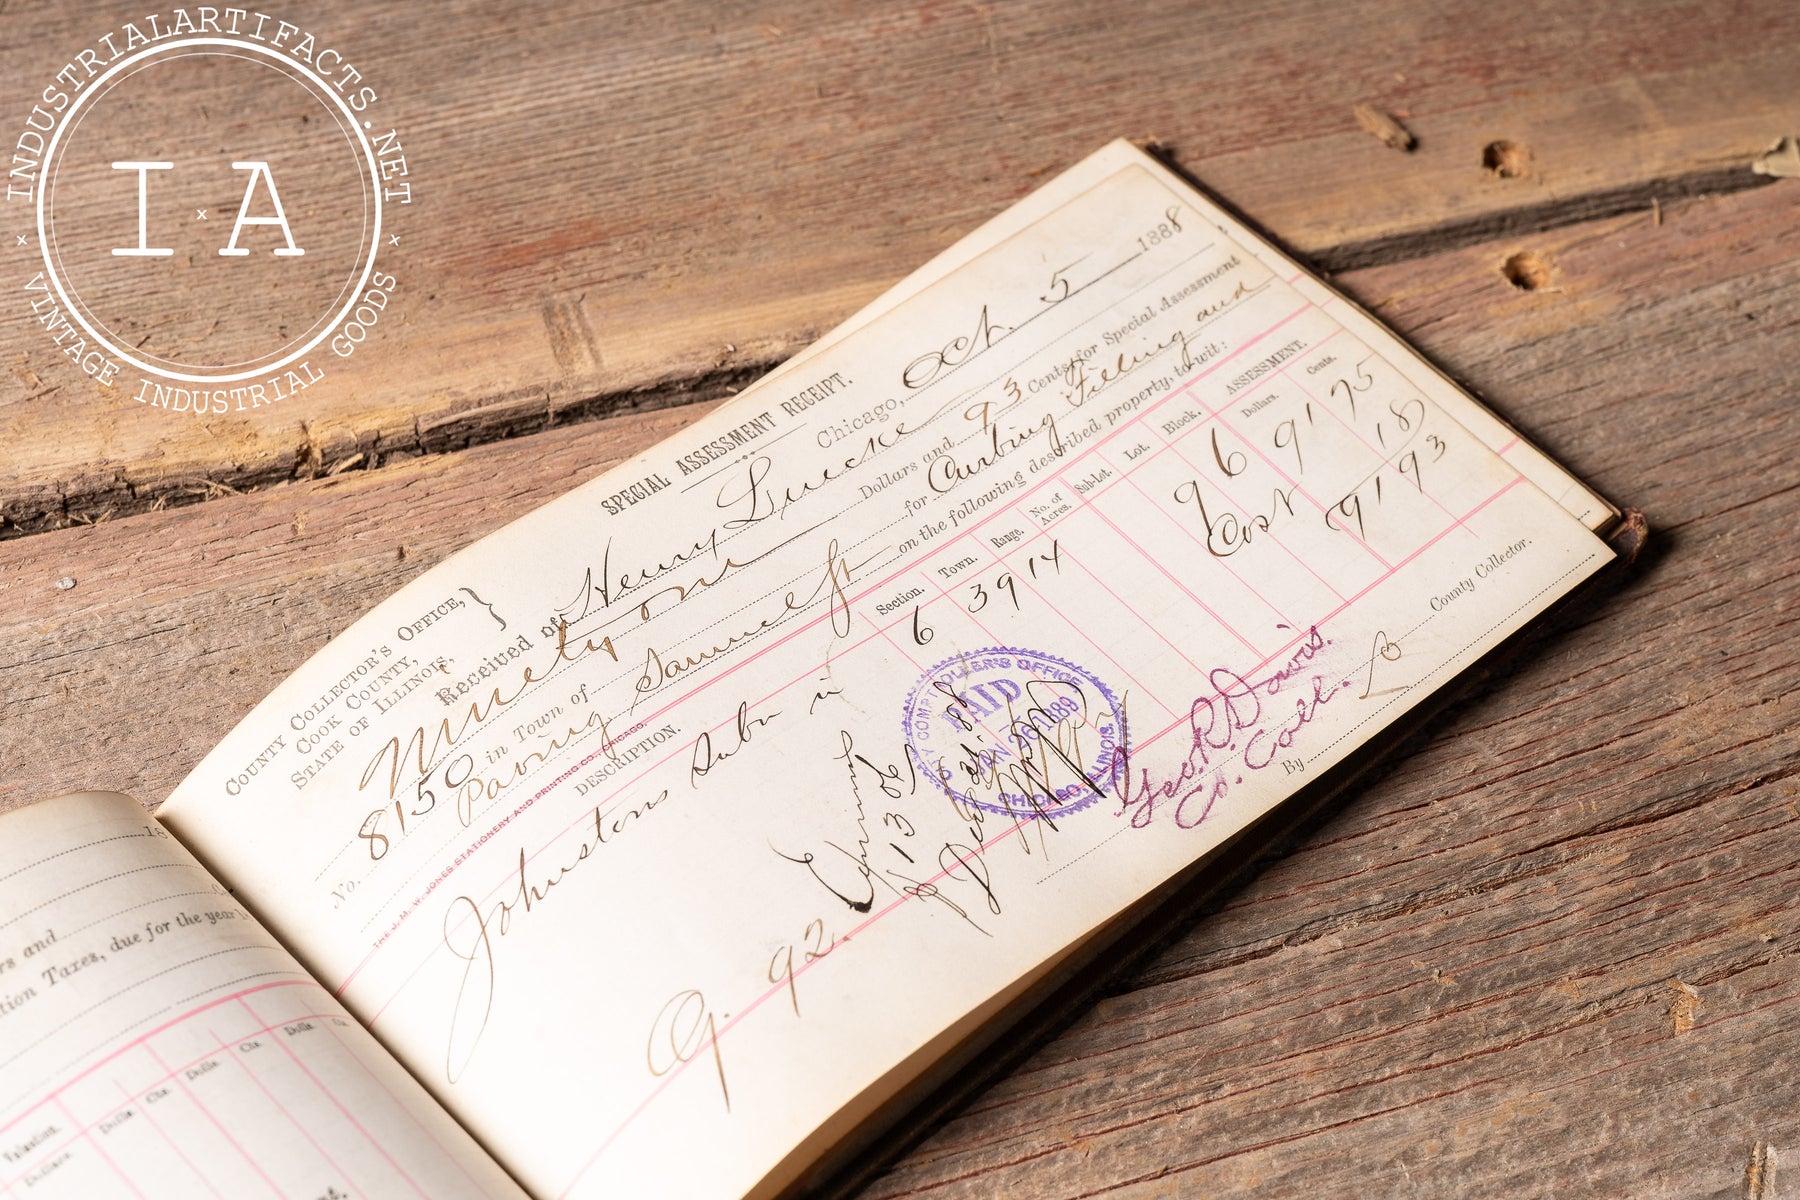 INDUSTRIALARTIFACTS.NET
I x A
VINTAGE INDUSTRIAL GOODS
SPECIAL ASSESSMENT RECEIPT.
COUNTY COLLECTOR'S OFFICE,
COOK COUNTY,
STATE OF ILLINOIS.
Chicago, Oct. 5 1888
Received of Henry Luecke
Ninety one Dollars and 93 Cents for Special Assessment
No. 8150 in Town of for Curbing Filling and
Paving Samuel St on the following described property, to wit:
THE J.M.W. JONES STATIONERY AND PRINTING CO., CHICAGO.
DESCRIPTION. Section. Town. Range. No. of Acres. Sub-Lot. Lot. Block. ASSESSMENT.
Dollars. Cents.
Johnstons Subn in 6 39 14 6 91 75
96
Cost 18
91 93
1306
CITY COMPTROLLER'S OFFICE
PAID
JAN 26 1889
CHICAGO, ILLINOIS.
88
92.
Geo. R. Davis.
Co. Coll.
County Collector.
By
18
rs and
tion Taxes, due for the year
Valuation.
Dollars
Dolls. Cts. Dolls. Cts. Dolls.